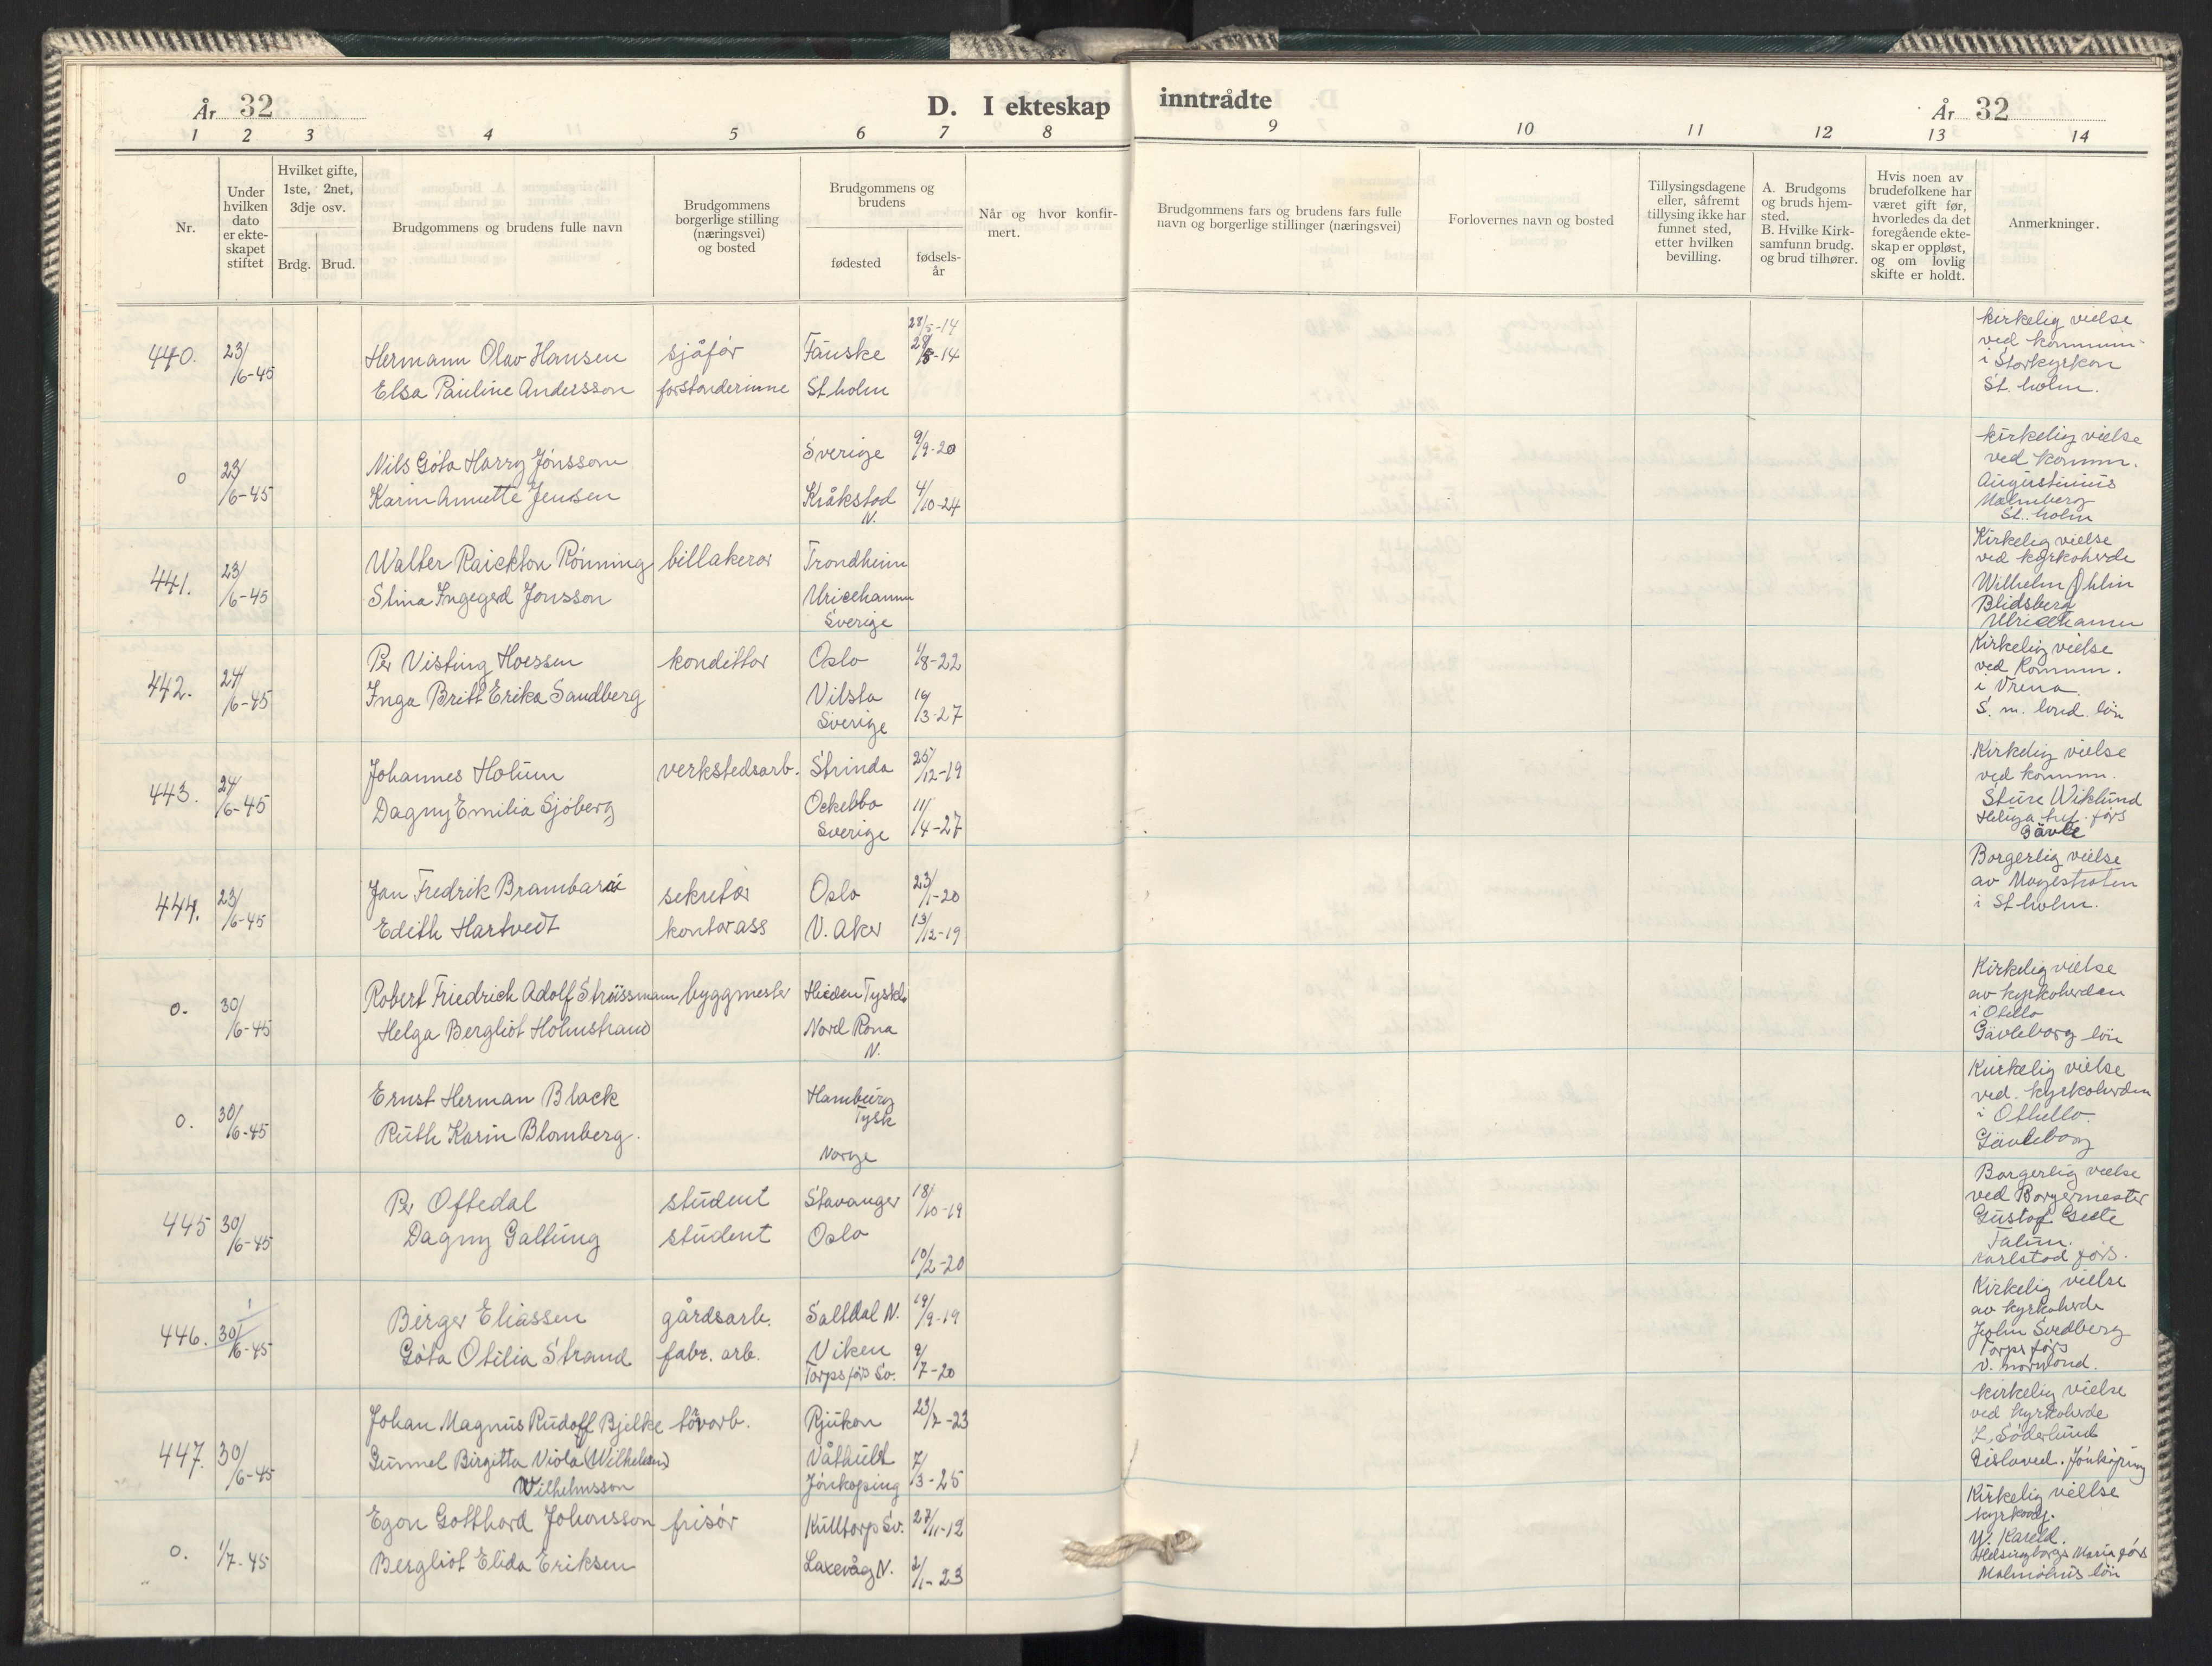 År 32
D. I ekteskap inntrådte
År 32
1 2 3 4 5 6 7 8 9 10 11 12 13 14
Nr.
Under
hvilken
dato
er ekte-
skapet
stiftet
Hvilket gifte,
1ste, 2net,
3dje osv.
Brdg. Brud.
Brudgommens og brudens fulle navn
Brudgommens
borgerlige stilling
(næringsvei)
og bosted
Brudgommens og
brudens
fødested
fødsels-
år
Når og hvor konfir-
mert.
Brudgommens fars og brudens fars fulle
navn og borgerlige stillinger (næringsvei)
Forlovernes navn og bosted
Tillysingsdagene
eller, såfremt
tillysing ikke har
funnet sted,
etter hvilken
bevilling.
A. Brudgoms
og bruds hjem-
sted.
B. Hvilke Kirk-
samfunn brudg.
og brud tilhører.
Hvis noen av
brudefolkene har
været gift før,
hvorledes da det
foregående ekte-
skap er oppløst,
og om lovlig
skifte er holdt.
Anmerkninger.
440. 23/6-45 Hermann Olav Hansen sjåfør Fauske 28/5-14
28/5-14
Elsa Pauline Andersson forstanderinne St.holm
kirkelig vielse
ved kommun-
i Storkyrkan
St. holm.
o 23/6-45 Nils Göta Harry Jönsson Sverige 9/9-20
Karin Annette Jensen Kråkstad 4/10-24
N.
kirkelig vielse
ved komm.
Augustinus
Malmberg
St. holm
441. 23/6-45 Walter Raickton Rönning billakerer Trondheim
Stina Ingegerd Jonsson Uricehamn
Sverige
Kirkelig vielse
ved kyrkoherde
Wilhelm Öhlin
Blidsberg
Ulricehamn
442. 24/6-45 Per Visting Hoessen konditor Oslo 1/8-22
Inga Britt Erika Sandberg Vilsta 19/3-27
Sverige
Kirkelig vielse
ved Komm.
i Vrena
S. m. land. län
443. 24/6-45 Johannes Holum verkstedsarb. Strinda 25/12-19
Dagny Emilia Sjöberg Ockelbo 11/4-27
Sverige
Kirkelig vielse
ved komm.
Sture Wiklund
Heliga tref. förs
Gävle
444. 23/6-45 Jan Fredrik Brambani sekretær Oslo 23/1-20
Edith Hartvedt kontorass V. Aker 13/12-19
Borgerlig vielse
av Magistraten
i St holm.
o. 30/6-45 Robert Friedrich Adolf Strüssmann byggmester Heiden Tyskl.
Helga Bergliot Holmstrand Nord Rana
N.
Kirkelig vielse
av kyrkoherden
i Otello
Gävleborg län
o. 30/6-45 Ernst Herman Black Hamburg
Tysk
Ruth Karin Blomberg.
Norge
Kirkelig vielse
ved. kyrkoherden
i Othello.
Gävleborg
445 30/6-45 Per Oftedal student Stavanger 18/10-19
Dagny Galtung student Oslo
10/2-20
Borgerlig vielse
ved Borgermester
Gustaf Geete
Falun.
Karlstad förs.
446. 30/6-45 Birger Eliassen gårdsarb. Saltdal N. 19/9-19
Göta Otilia Strand fabr. arb. Viken 9/7-20
Torps förs Sv.
Kirkelig vielse
av kyrkoherde
John Svedberg
Torps förs
V. norrland.
447. 30/6-45 Johan Magnus Rudolf Bjelke törvarb. Rjukan 23/7-23
Gunnel Birgitta Viola (Wilhelmsen) Våthult 7/3-25
Wilhelmsson Jönköping
kirkelig vielse
ved kyrkoherde
L. Söderlund
Gislaved. Jönköping
o. 1/7-45 Egon Gotthard Johansson frisör Kulltorp Sv. 27/11-12
Bergliot Elida Eriksen Laxevåg N. 2/1-23
Kirkelig vielse
kyrkoadj.
W. Kareld.
Helsingborgs Maria förs
Malmöhus län